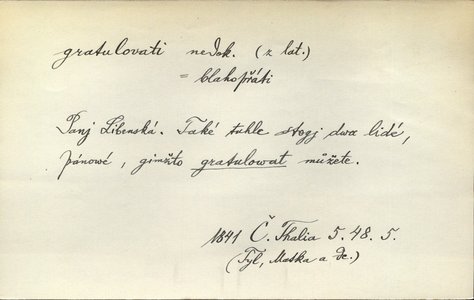 gratulovati nedok. (z lat.)
= blahopřáti
Panj Libenská. Také tuhle stogj dwa lidé,
pánowé, gimžto gratulowat můžete.
1841 Č. Thalia 5. 48. 5.
(Tyl, Maska a